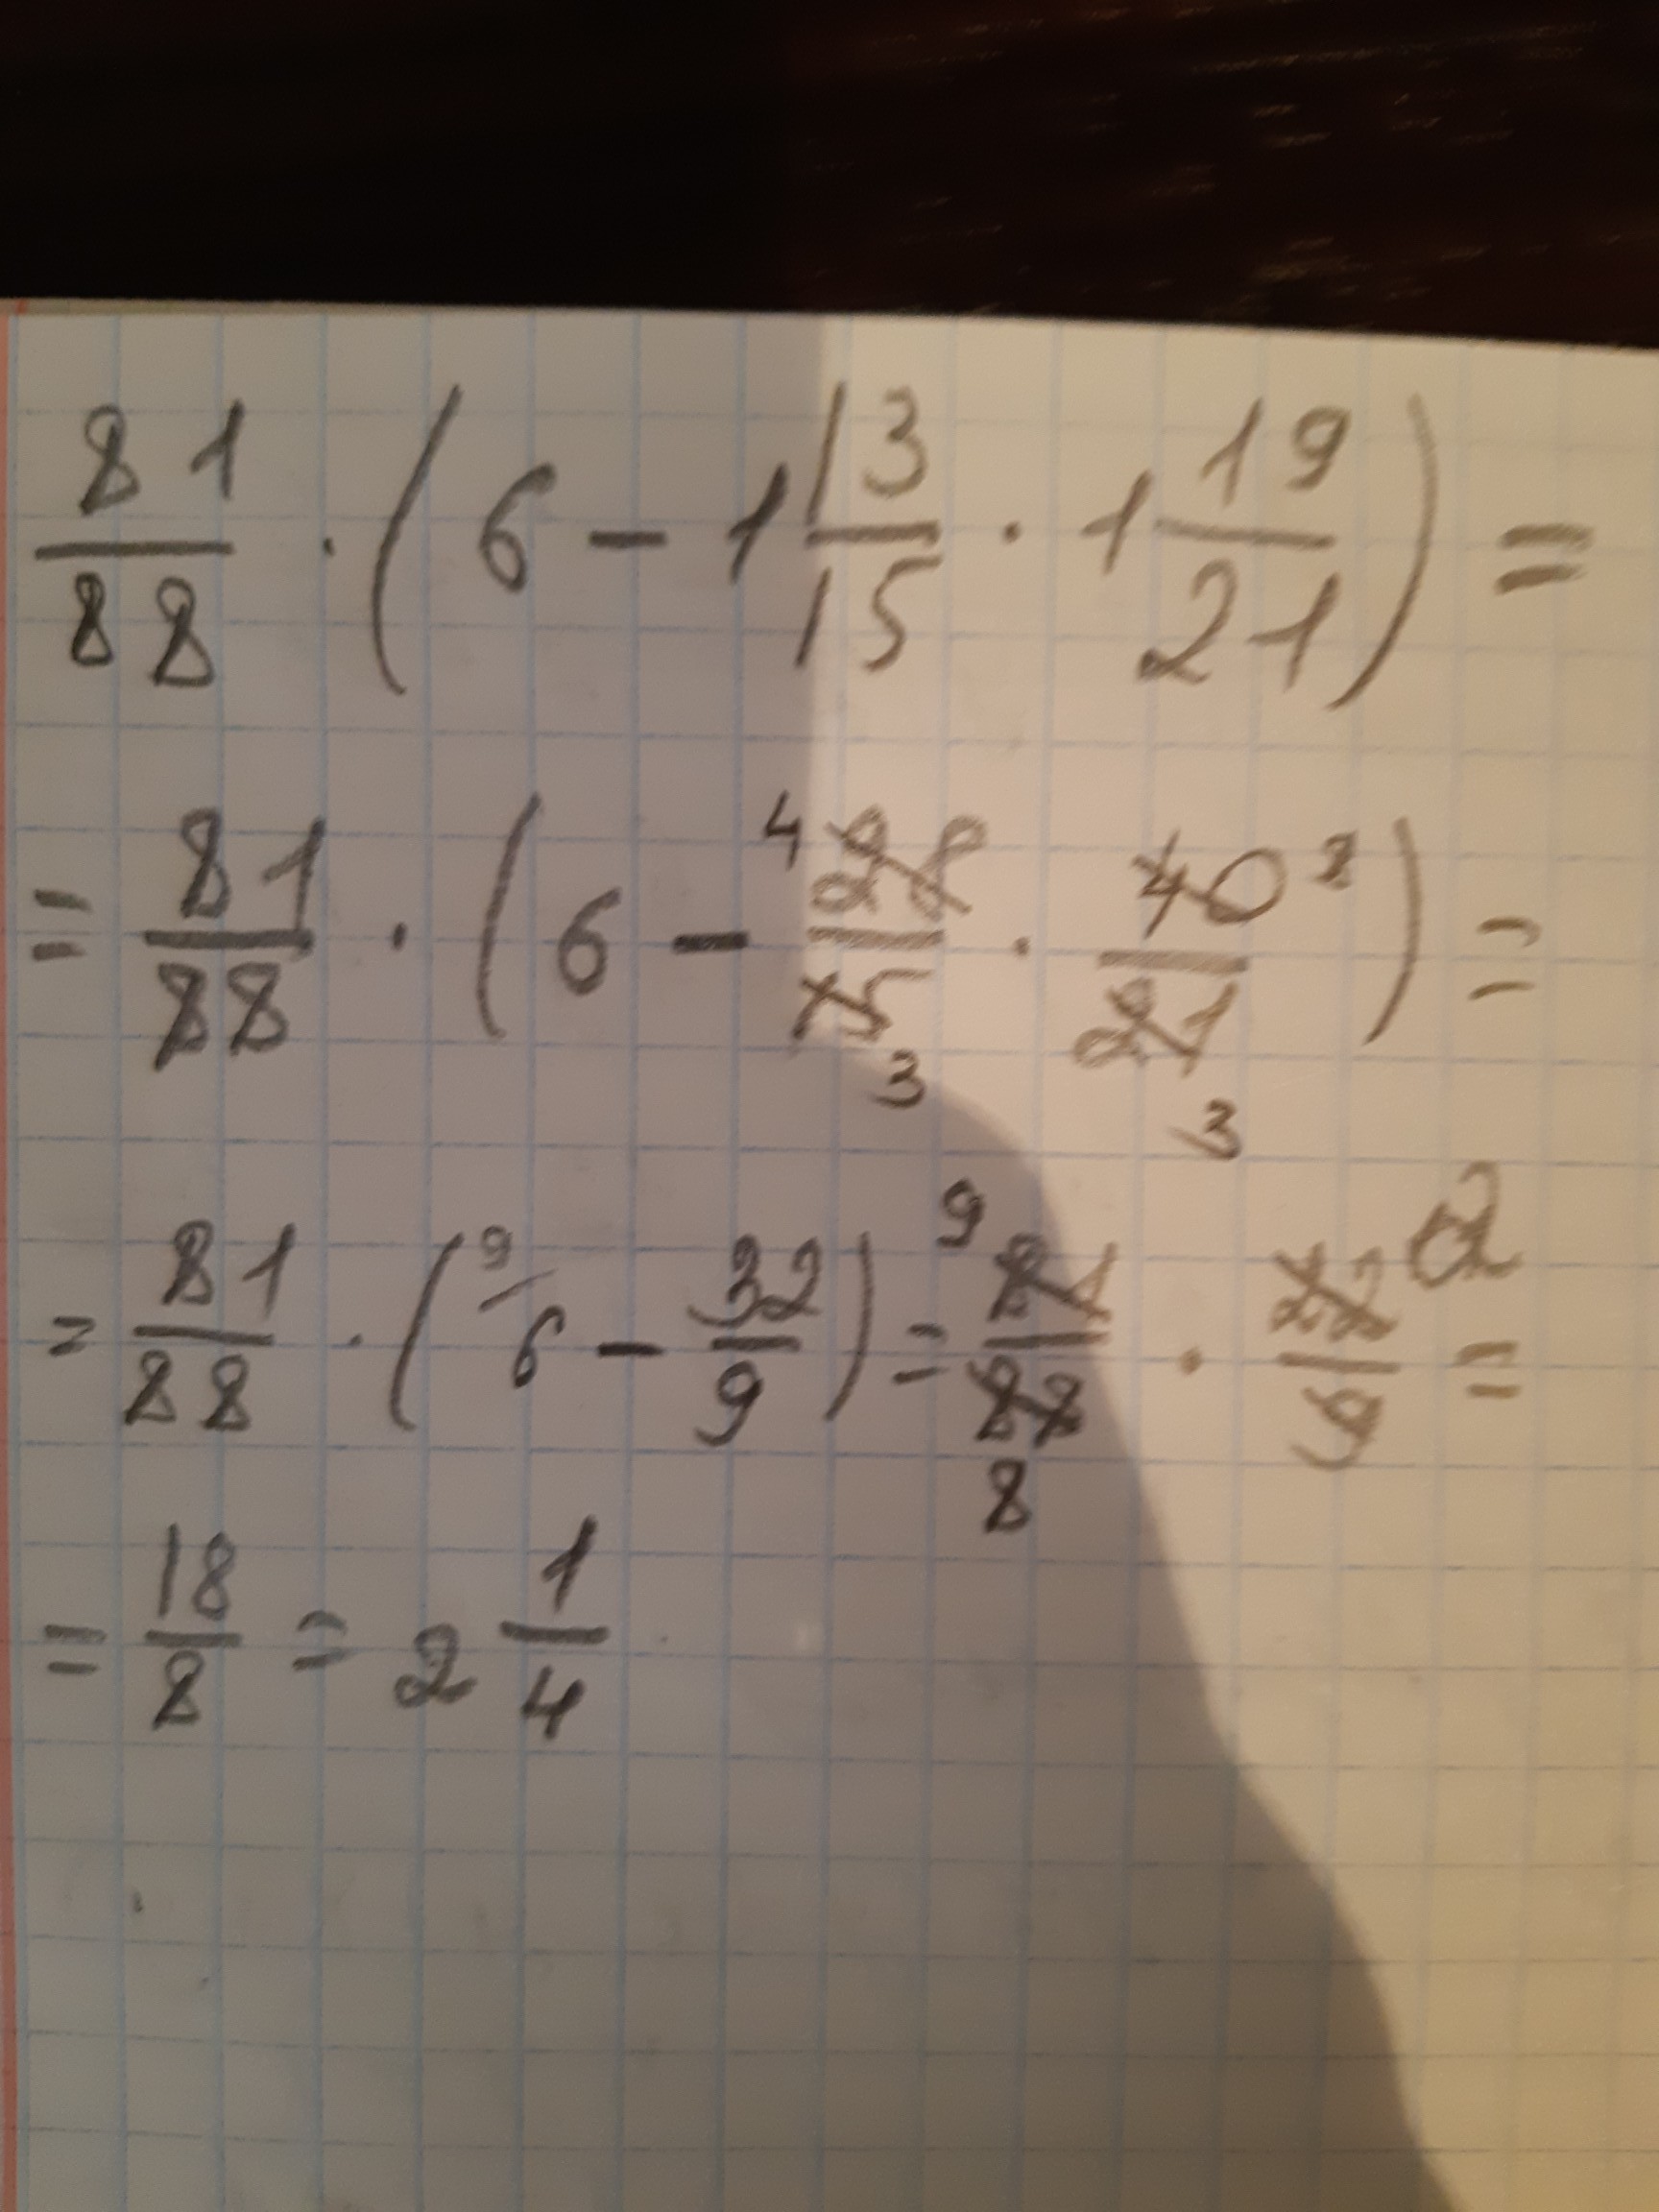 81/88 · (6 - 1 13/15 · 1 19/21) =
= 81/88 · (6 - 4 28/15 3 · 40 8/21 3) =
= 81/88 · (9/ 6 - 32/9) = 9 81/88 8 · 22 2/9 =
= 18/8 = 2 1/4